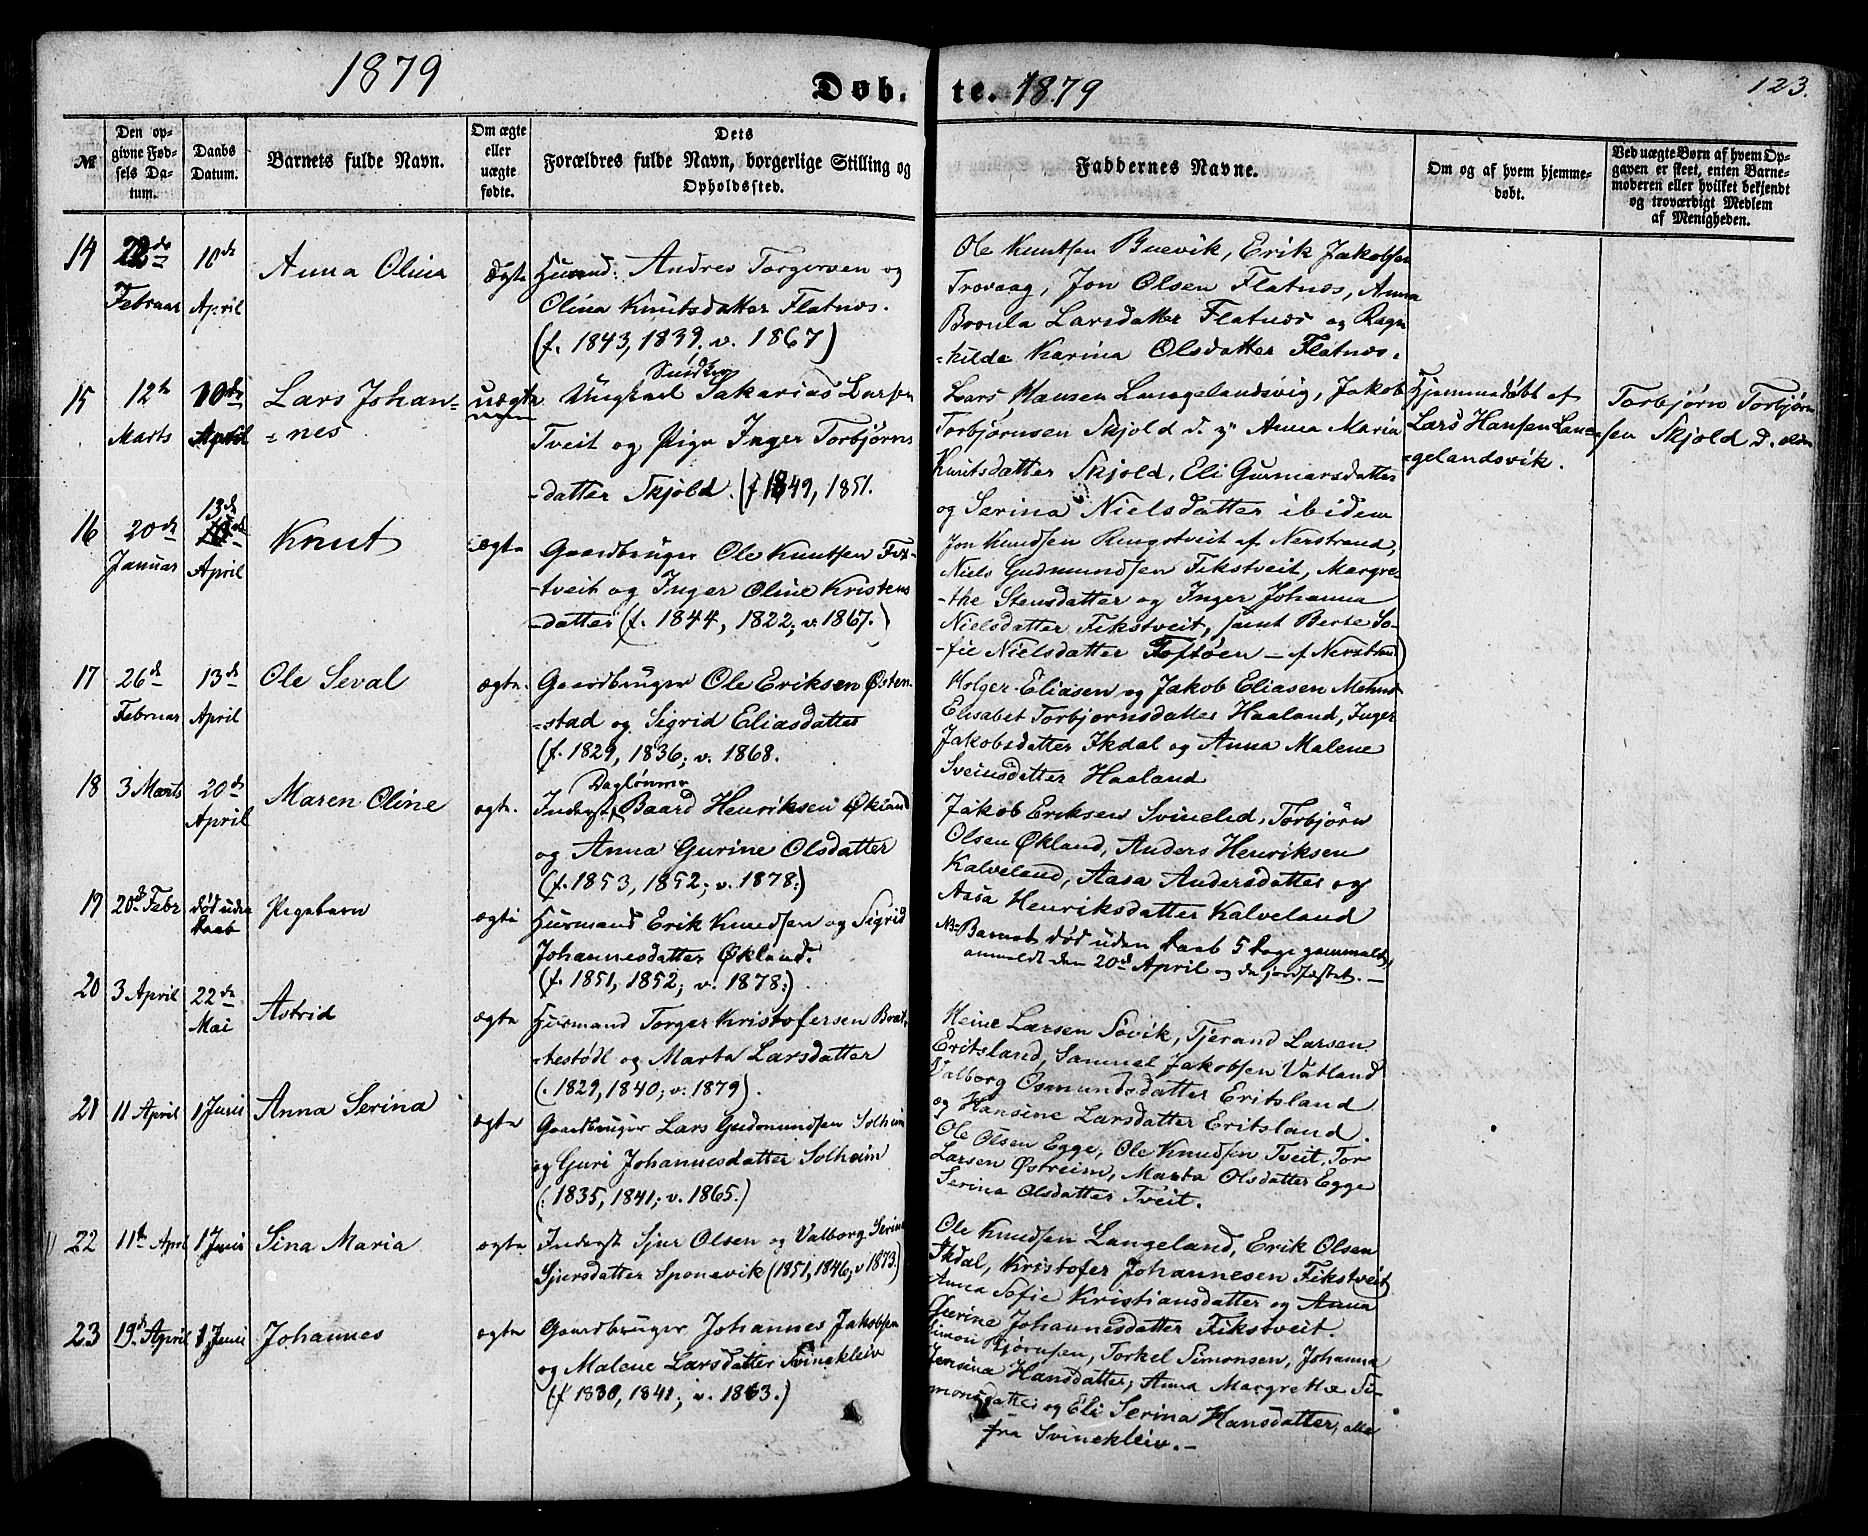 1879
Døb-te. 1879
123.
№
Den op-
givne Fød-
sels Da-
tum.
Daabs
Datum.
Barnets fulde Navn.
Om ægte
eller
uægte
fødte.
Dets
Forældres fulde Navn, borgerlige Stilling og
Opholdssted.
Faddernes Navne.
Om og af hvem hjemme-
døbt.
Ved uægte Børn af hvem Op-
gaven er skeet, enten Barne-
moderen eller hvilket bekjendt
og troværdigt Medlem
af Menigheden.
14
22de
Februar
10de
April
Anna Olina
Ægte
Husmd: Andres Torgersen og
Olina Knutsdatter Flatnæs.
(f. 1843, 1839. v. 1867)
Ole Knutsen Buevik, Erik Jakobsen
Trovaag, Jon Olsen Flatnæs, Anna
Broula Larsdatter Flatnæs og Ragn
-hilde Karina Olsdatter Flatnæs.
15
12te
Marts
10de
April
Lars Johan-
=nes
uægte
Ungkarl Sakarias Larsen
Tveit og Pige Inger Torbjørns
-datter Skjold. (f 1849, 1851.
Lars Hansen Langelandsvig, Jakob
Torbjørnsen Skjold d. y. Anna Maria
Knutsdatter Skjold, Eli Gunnarsdatter
og Serina Nielsdatter ibidem
Hjemmedøbt af
Lars Hansen Lan-
-gelandsvik.
Torbjørn Torbjørn
-sen Skjold d. eldre
16
20de
Januar
13de
April
Knut
ægte
Gaardbruger Ole Knutsen Fix-
-tveit og Inger Oline Kristens
-datter (f. 1844, 1822; v. 1867.)
Jon Knudsen Ringstveit af Nerstrand,
Niels Gudmundsen Fikstveit, Margre-
-the Stensdatter og Inger Johanna
Nielsdatter Fikstveit, samt Berte So-
-fie Nielsdatter Toftøen - af Nerstrand)
17
26de
Februar
13de
April
Ole Seval
ægte.
Gaardbruger Ole Eriksen Østen-
-stad og Sigrid Eliasdatter
(f. 1829, 1836; v. 1868.
Holger Eliasen og Jakob Eliasen
Elisabet Torbjørnsdatter Haaland, Inger
Jakobsdatter Ikdal og Anna Malene
Sveinsdatter Haaland
18
3 Marts
20de
April
Maren Oline
ægte.
Daglønner
Inderst Baard Henriksen Økland
og Anna Gurine Olsdatter
(f. 1853, 1852; v. 1878.)
Jakob Eriksen Svineled, Torbjørn
Olsen Økland, Anders Henriksen
Kalveland, Aasa Andersdatter og
Aasa Henriksdatter Kalveland
19
20de Febr
død uden
Daab
Pigebarn
ægte
Husmand Erik Knudsen og Sigrid
Johannesdatter Økland.
(f. 1851, 1852; v. 1878.)
NB. Barnet død uden Daab 5 Dage gammelt,
anmeldt den 20de April og da jordfæstet. -
20
3 April
22de
Mai
Astrid
ægte
Husmand Torger Kristofersen Brat-
-testødl og Marta Larsdatter
(: 1829, 1840; v. 1879).
Heine Larsen Søvik, Tjerand Larsen
Eritsland, Samuel Jakobsen Vatland
Valborg Osmundsdatter Eritsland
og Hansine Larsdatter Eritsland.
21
11 April
1 Juni
Anna Serina
ægte
Gaardbruger Lars Gudmundsen Solheim
og Guri Johannesdatter Solheim
(: 1835, 1841; v. 1865.)
Ole Olsen Egge, Ole Knudsen Tveit, Tor
Larsen Østreim, Marta Olsdatter Egge
Serina Olsdatter Tveit.
22
11te April
1 Juni
Sina Maria
ægte
Inderst Sjur Olsen og Valborg Serine
Sjursdatter Sponevik (1851, 1846; v 1873.)
Ole Knudsen Langeland, Erik Olsen
Ikdal, Kristofer Johannesen Fikstveit
Anna Sofie Kristiansdatter og Anna
Gurine Johannesdatter Fikstveit.
23
19de April
1 Juni
Johannes
ægte
Gaardbruger Johannes Jakobsen
og Malene Larsdatter Svinekleiv
(f 1830, 1841; v. 1863.)
Simon Bjørnsen, Torkel Simonsen, Johanna
Jensina Hansdatter, Anna Margrethe Si-
monsdatter og Eli Serina Hansdatter, alle
fra Svinekleiv. -